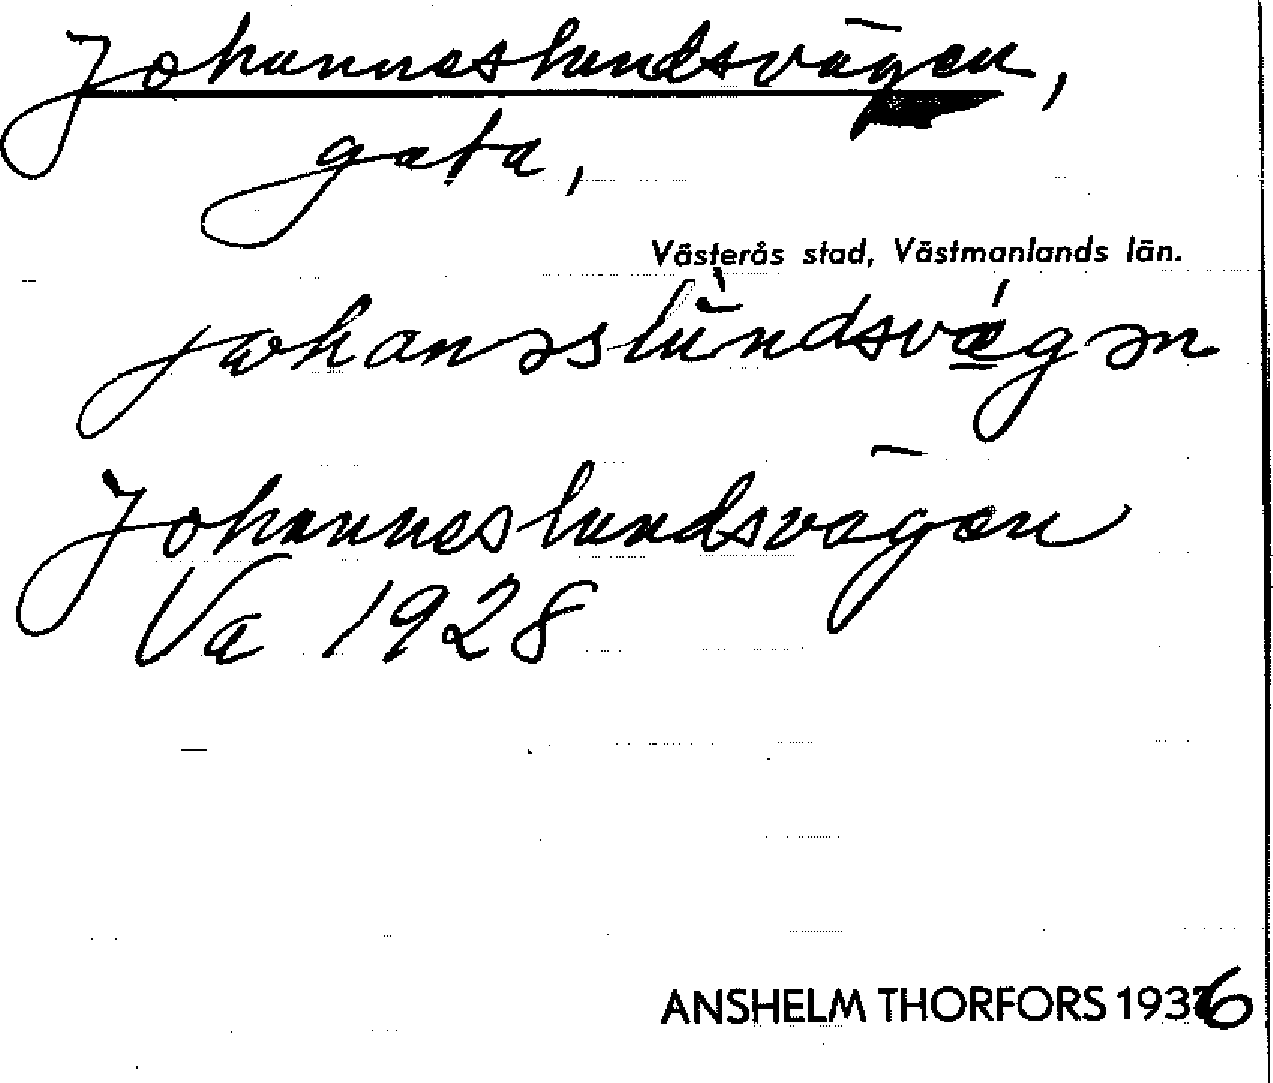 Johanneslundsvägen,
gata,
Västerås stad, Västmanlands län.
johanəslùndsvǽgən
Johanneslundsvägen
Va 1928
ANSHELM THORFORS 1936